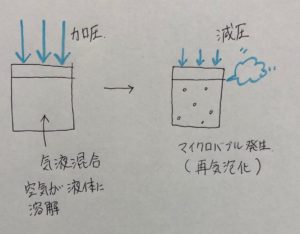 加圧
減圧
気液混合
空気が液体に
溶解
マイクロバブル発生
(再気泡化)